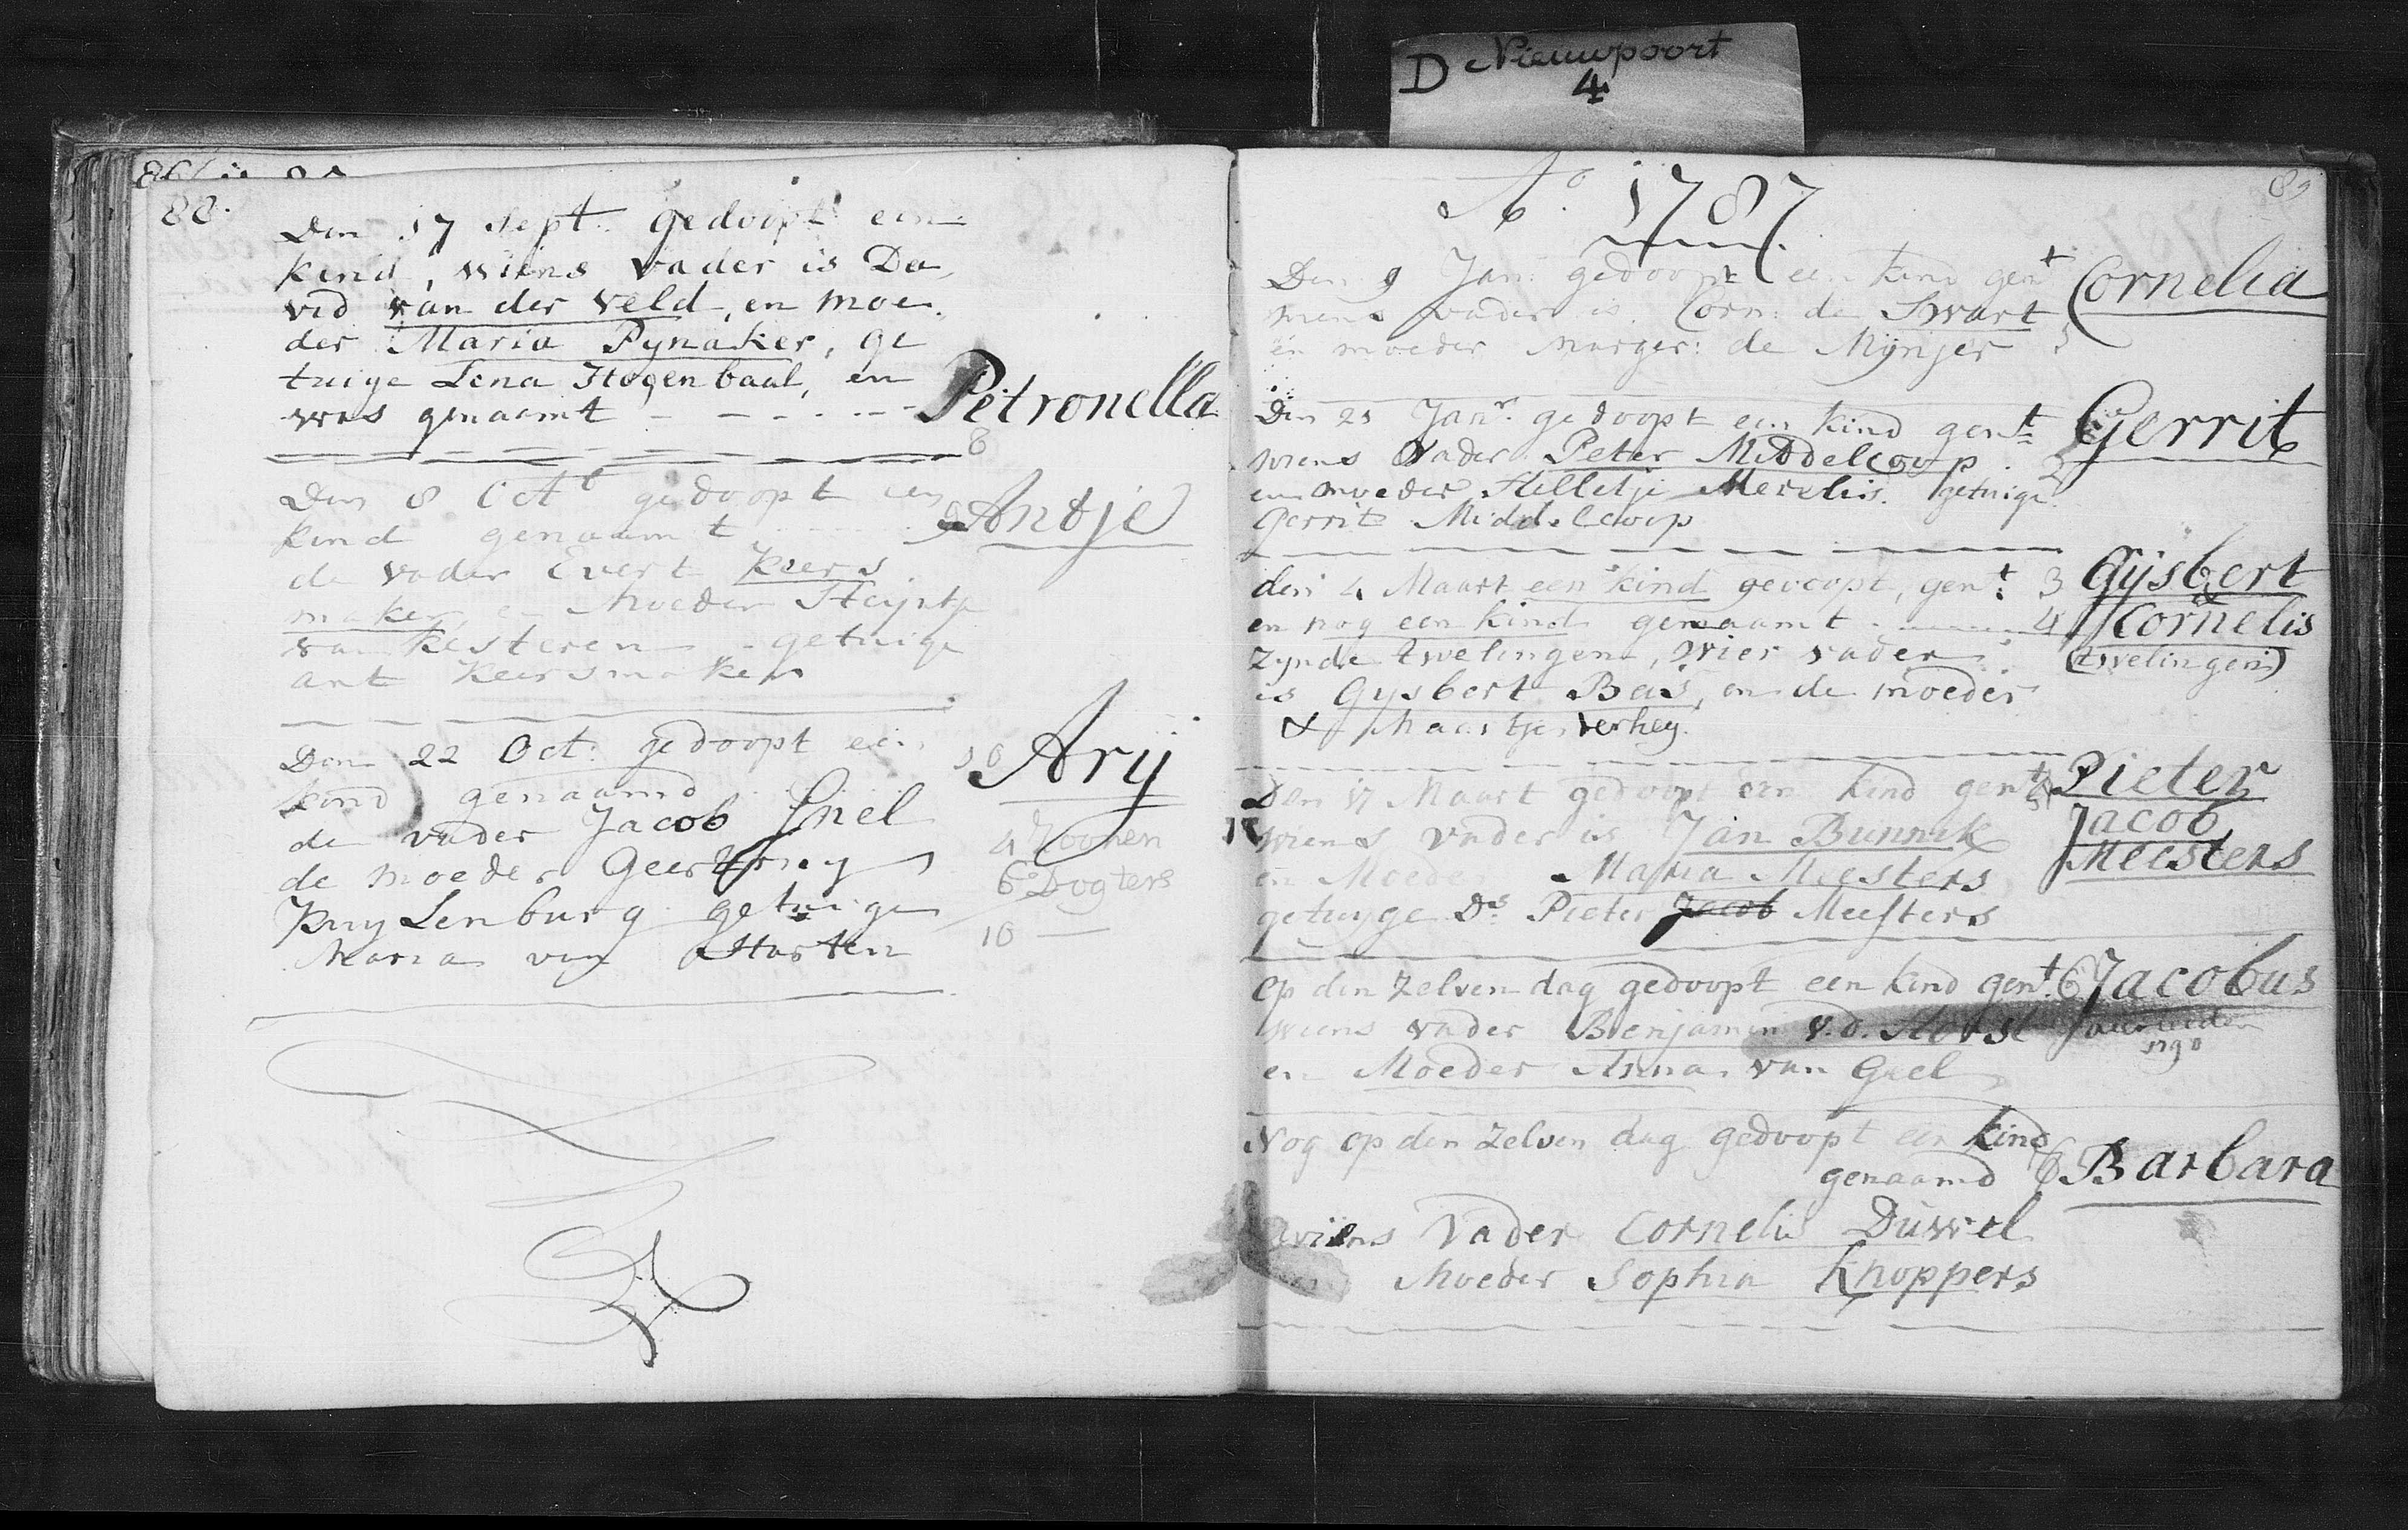 D Nieuwpoort
4
88.
Den 17 Sept. gedoopt een
kind, wiens vader is Da
vid van der Veld, en moe
der Maria Pynaker, ge
tuige Lena Hogenbaal, en
was genaamt - - - - - - Petronella
8
Den 8 Oct gedoopt een
kind genaamt 9 Antje
de vader Evert Keers
maker en Moeder
van Kesteren getuige
ant Keersmaker
Den 22 Oct: gedoopt een
kind genaamd 10 Arij
de vader Jacob Snel
de moeder Geertruy
Kuylenburg getuige
Maria van
4 Zoonen
6 Dogters
10 —
89
Ao. 1787
Den 9 Jan: gedoopt een kind gent Cornelia
wiens vader is Corn: de Swart
en moeder Marger: de Mynjer
Den 21 Janr. gedoopt een kind gent Gerrit
wiens Vader Peter Middelcoop 2
en moeder Merelis. getuige
Gerrit Middelcoop
den 4 Maart een kind gedoopt, gent: 3 Gijsbert
en nog een kind genaamt 4 & Cornelis
zynde twelingen, wier vader (twelingen)
is Gysbert Bas, en de moeder
Maartje Verhey.
Den 17 Maart gedoopt een kind gent 5 Pieter
wiens vader is Jan Bunnik Jacob
en Moeder Maria Meesters Meesters
getuyge Ds Pieter Jacob Meesters
Op den zelven dag gedoopt een kind gent. 6 Jacobus
wiens vader Benjamin v.d. Horst overleden
1790
en Moeder Anna van Giel
Nog op den zelven dag gedoopt een kind
genaamd 6 Barbara
wiens Vader Cornelis Duwel
Moeder Sophia Knoppers